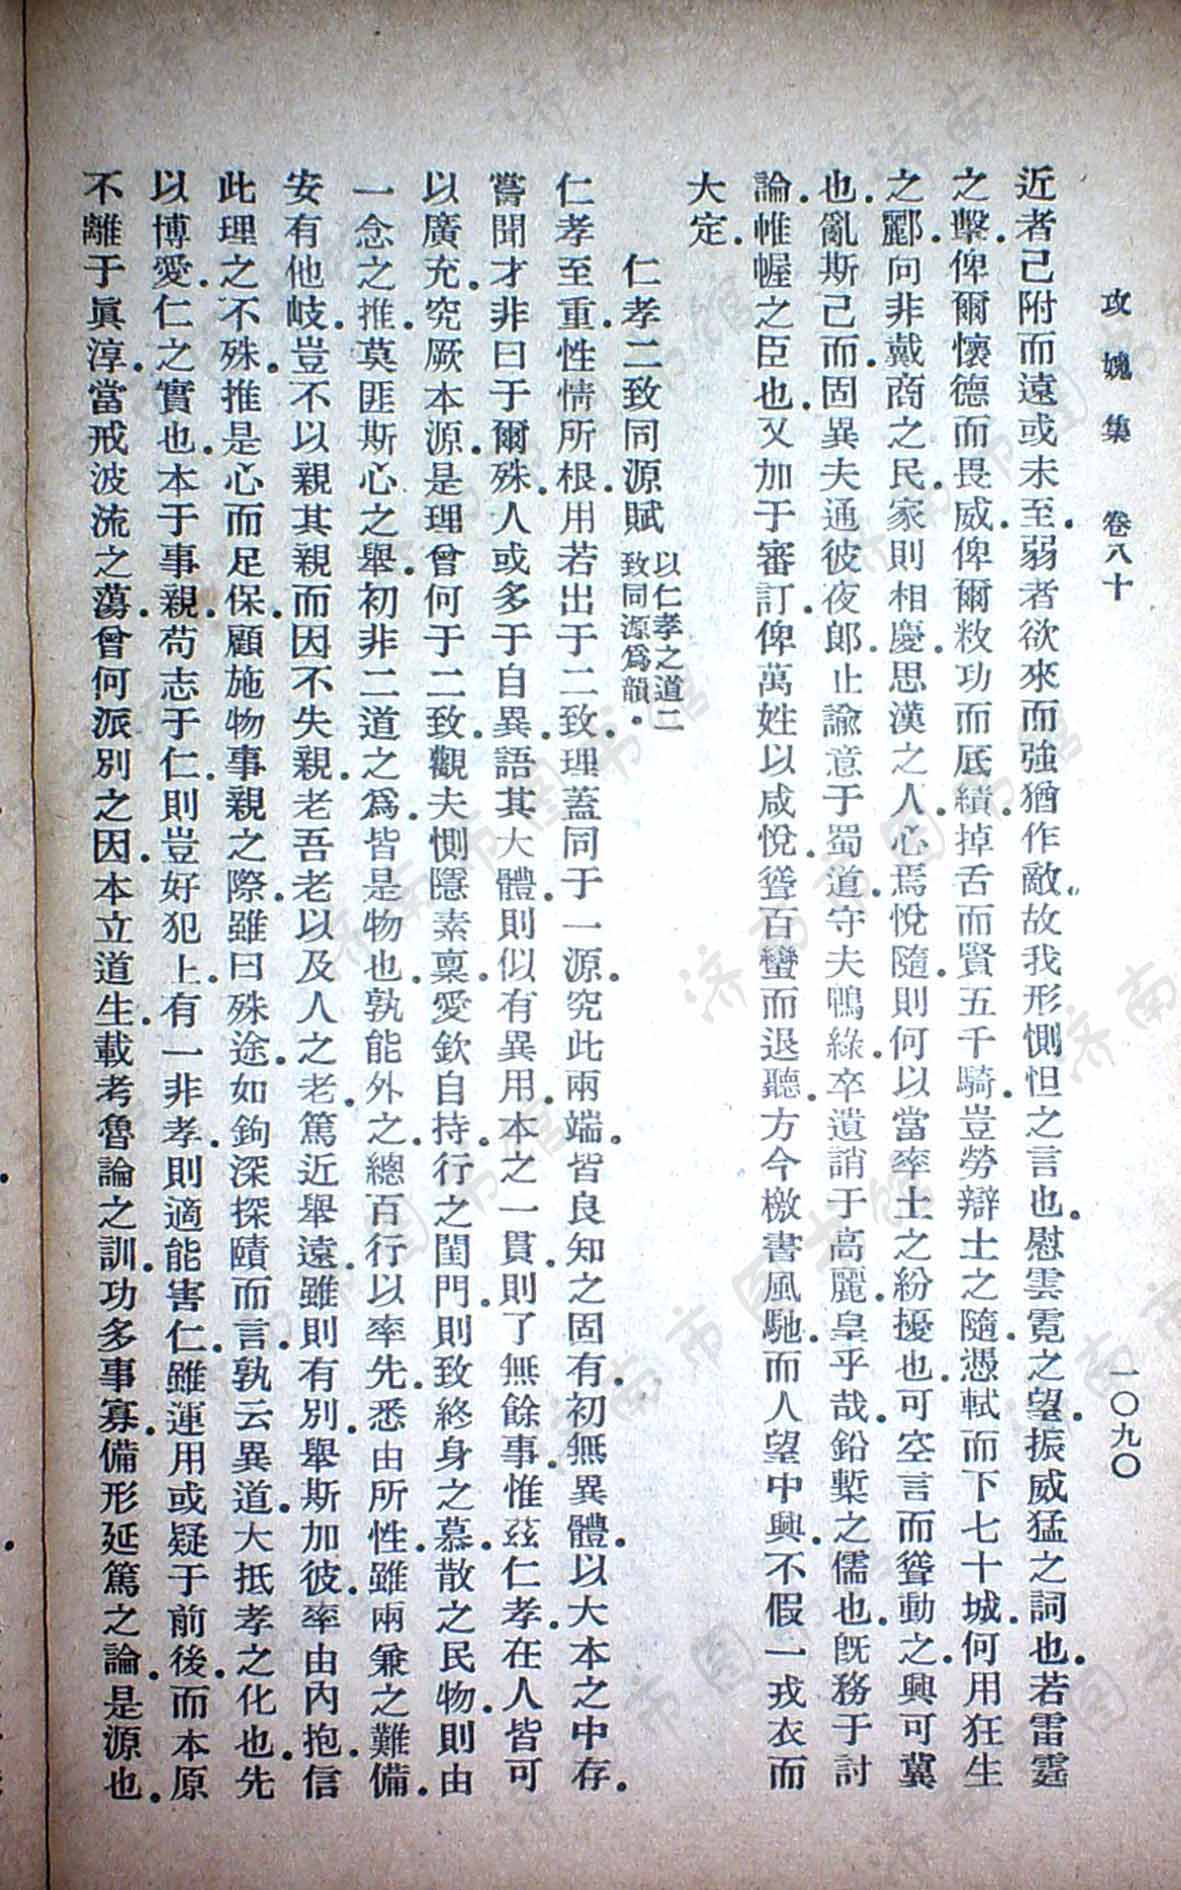 攻媿集 卷八十 一〇九〇
近者已附而遠或未至。弱者欲來而強猶作敵。故我形惻怛之言也。慰雲霓之望。振威猛之詞也。若雷霆
之擊。俾爾懷德而畏威。俾爾敉功而底績。掉舌而賢五千騎。豈勞辯士之隨。憑軾而下七十城。何用狂生
之酈。向非戴商之民。家則相慶。思漢之人。心焉悅隨。則何以當率土之紛擾也。可空言而聳動之。興可冀
也。亂斯已而。固異夫通彼夜郎。止諭意于蜀道。守夫鴨綠。卒遺誚于高麗。皇乎哉。鉛槧之儒也。旣務于討
論。帷幄之臣也。又加于審訂。俾萬姓以咸悅。聳百蠻而退聽。方今檄書風馳。而人望中興。不假一戎衣而
大定。
仁孝二致同源賦 以仁孝之道二致同源爲韻。
仁孝至重。性情所根。用若出于二致。理蓋同于一源。究此兩端。皆良知之固有。初無異體。以大本之中存。
嘗聞才非曰于爾殊。人或多于自異。語其大體。則似有異用。本之一貫。則了無餘事。惟茲仁孝。在人皆可
以廣充。究厥本源。是理曾何于二致。觀夫惻隱素稟。愛欽自持。行之閨門。則致終身之慕。散之民物。則由
一念之推。莫匪斯心之舉。初非二道之爲。皆是物也。孰能外之。總百行以率先。悉由所性。雖兩兼之難備。
安有他岐。豈不以親其親而因不失親。老吾老以及人之老。篤近舉遠。雖則有別。舉斯加彼。率由內抱。信
此理之不殊。推是心而足保。顧施物事親之際。雖曰殊途。如鉤深探賾而言。孰云異道。大抵孝之化也。先
以博愛。仁之實也。本于事親。苟志于仁。則豈好犯上。有一非孝。則適能害仁。雖運用或疑于前後。而本原
不離于眞淳。當戒波流之蕩。曾何派別之因。本立道生。載考魯論之訓。功多事寡。備形延篤之論。是源也。